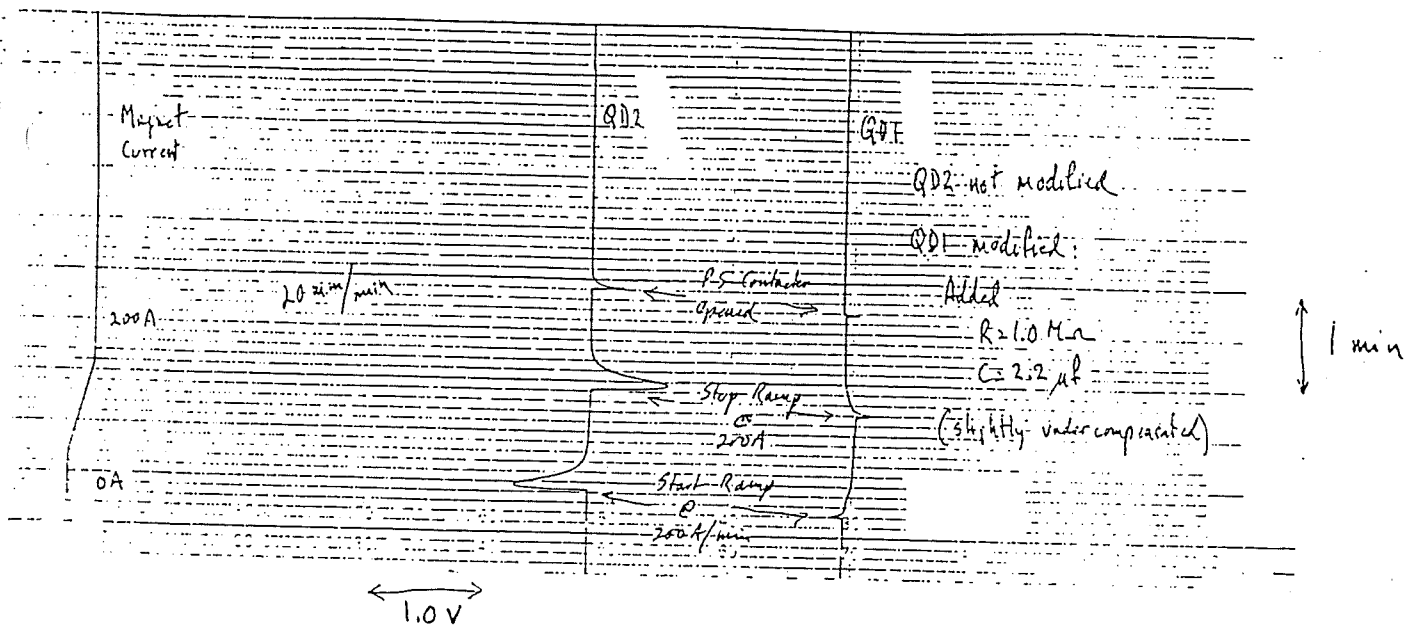 Magnet
Current
QD2
QD1
QD2 not modified
QD1 modified:
Added
R=1.0 MΩ
C=2.2 µf
(slightly undercompensated)
20 mm/min
P.S Contactor
opened
200A
1 min
Stop Ramp
@
200A
0A
Start Ramp
@
200A/min
1.0 V